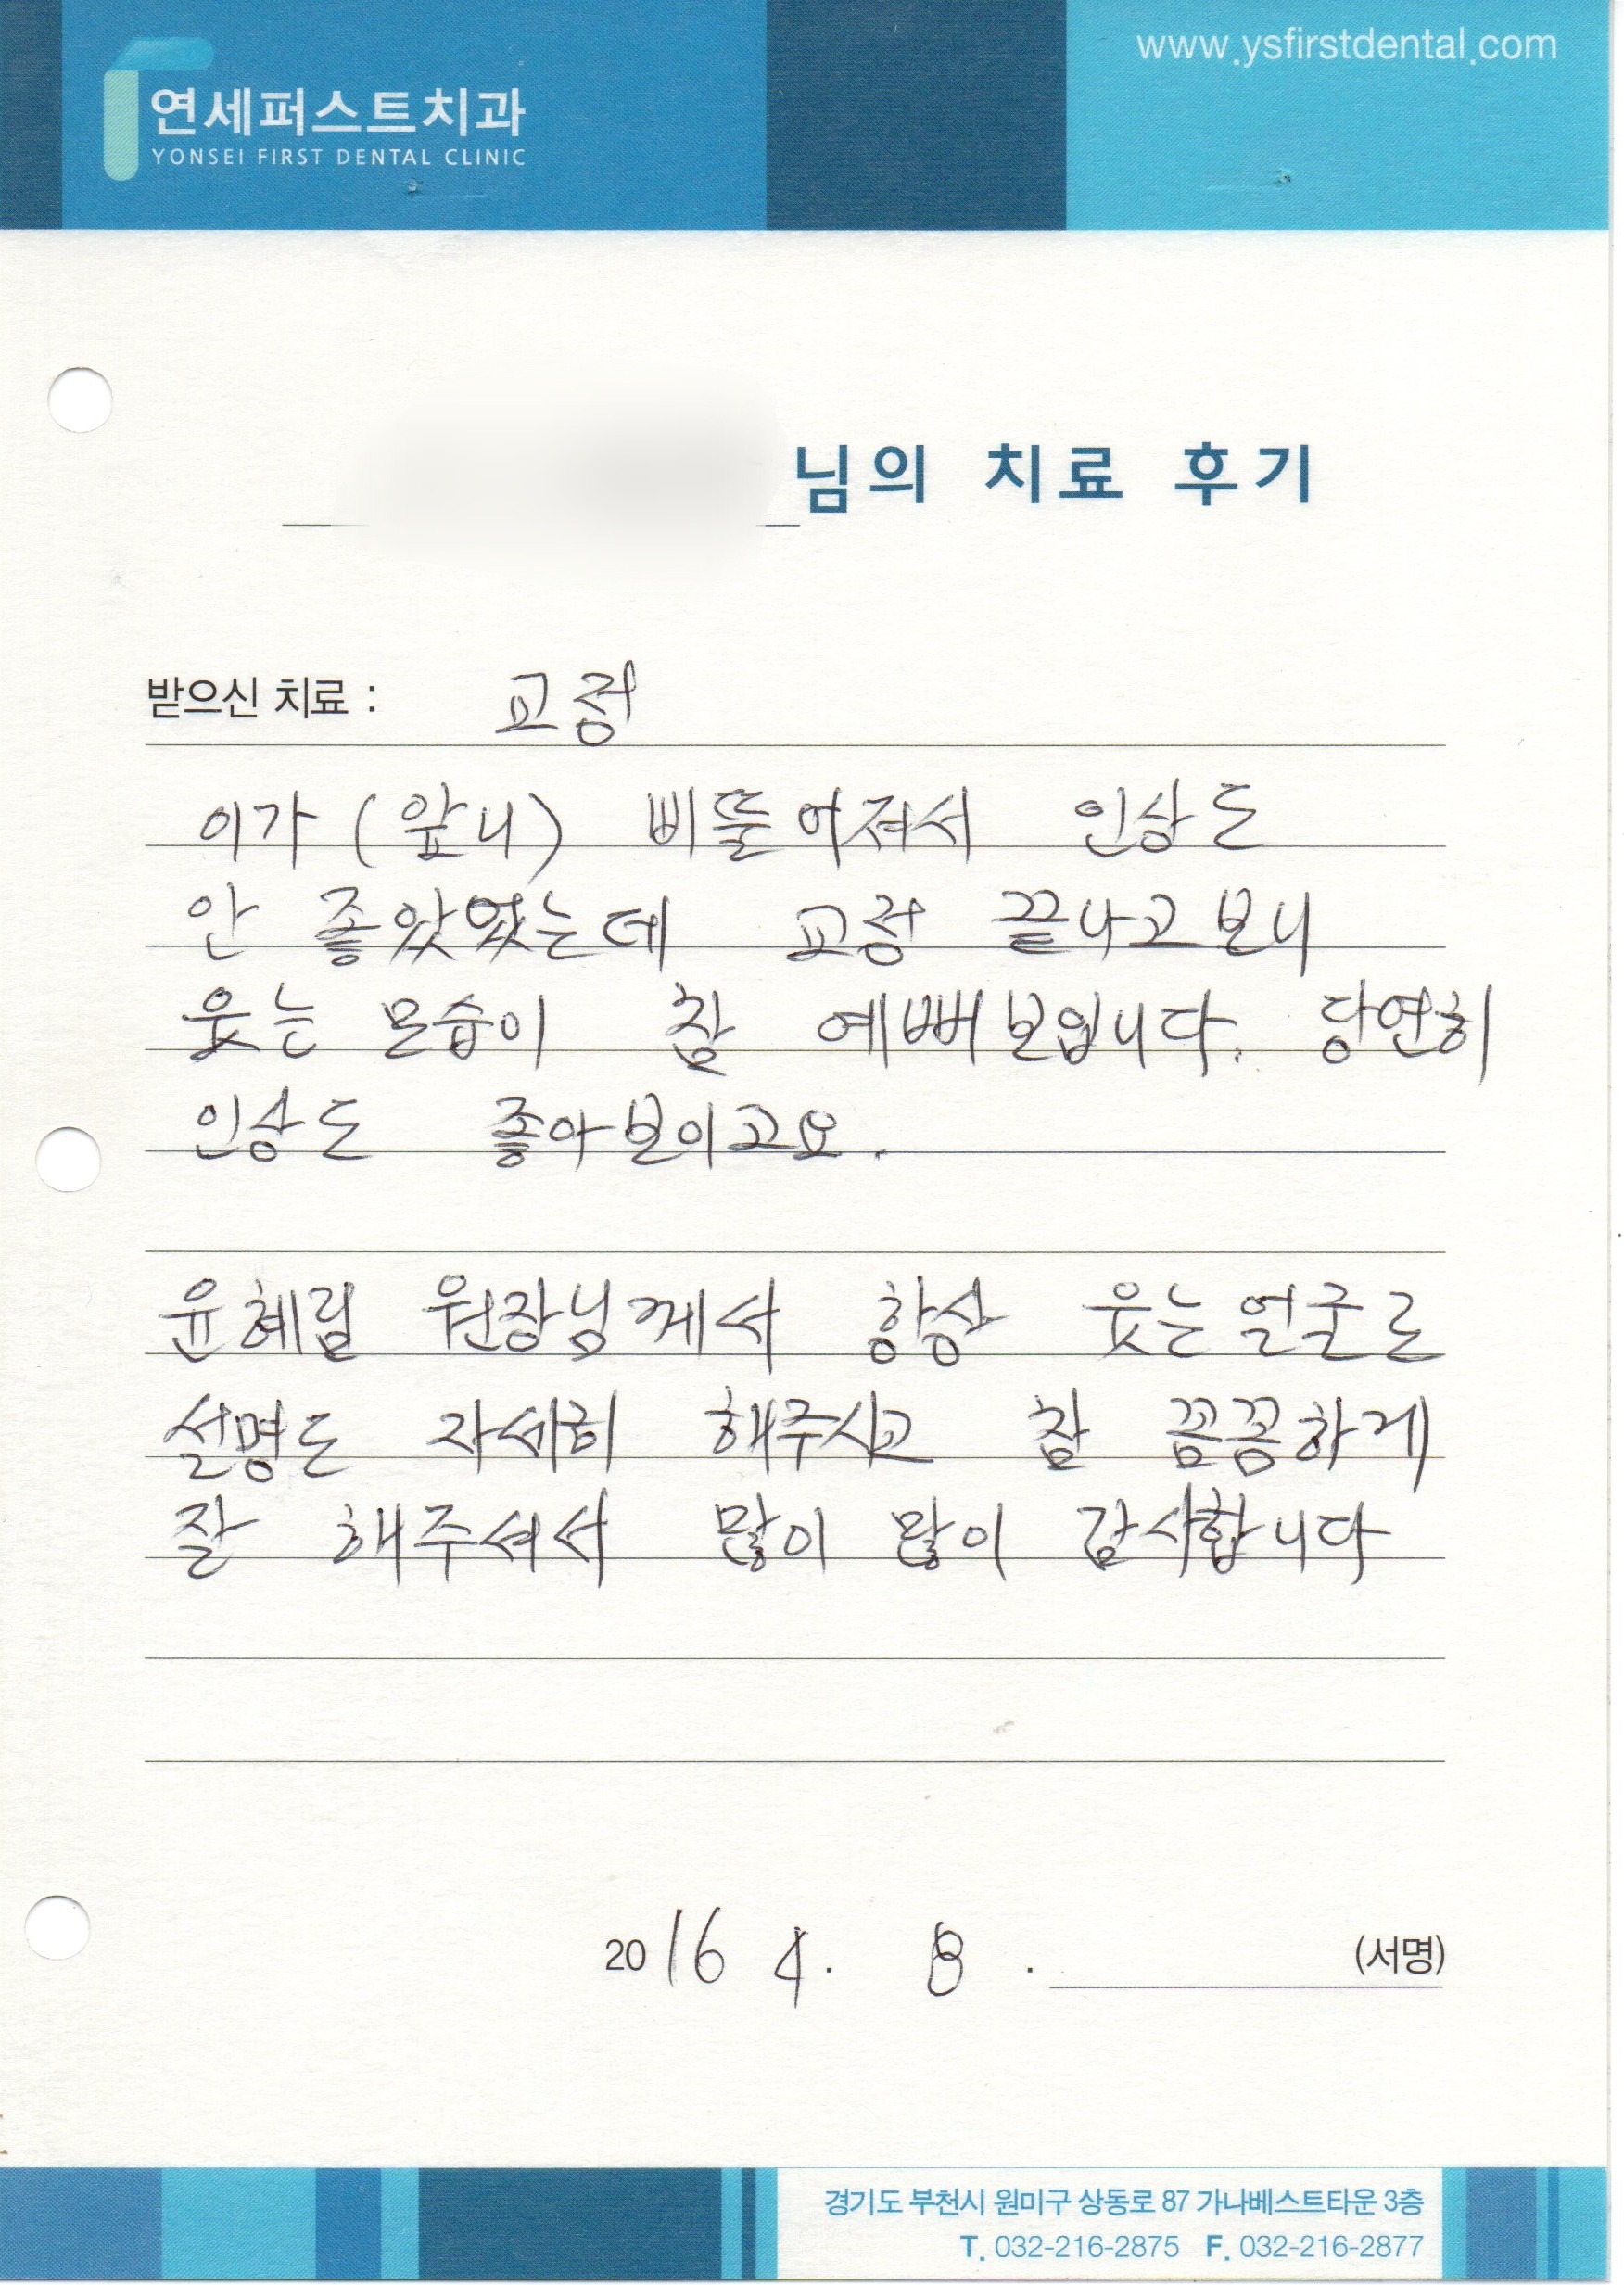 연세퍼스트치과
YONSEI FIRST DENTAL CLINIC
www.ysfirstdental.com
님의 치료 후기
받으신 치료 : 교정
이가 (앞니) 삐뚤어져서 인상도
안 좋았었는데 교정 끝나고보니
웃는 모습이 참 예뻐보입니다. 당연히
인상도 좋아보이고요.
윤혜림 원장님께서 항상 웃는얼굴로
설명도 자세히 해주시고 참 꼼꼼하게
잘 해주셔서 많이 많이 감사합니다
2016 4. 8 . (서명)
경기도 부천시 원미구 상동로 87 가나베스트타운 3층
T. 032-216-2875 F. 032-216-2877